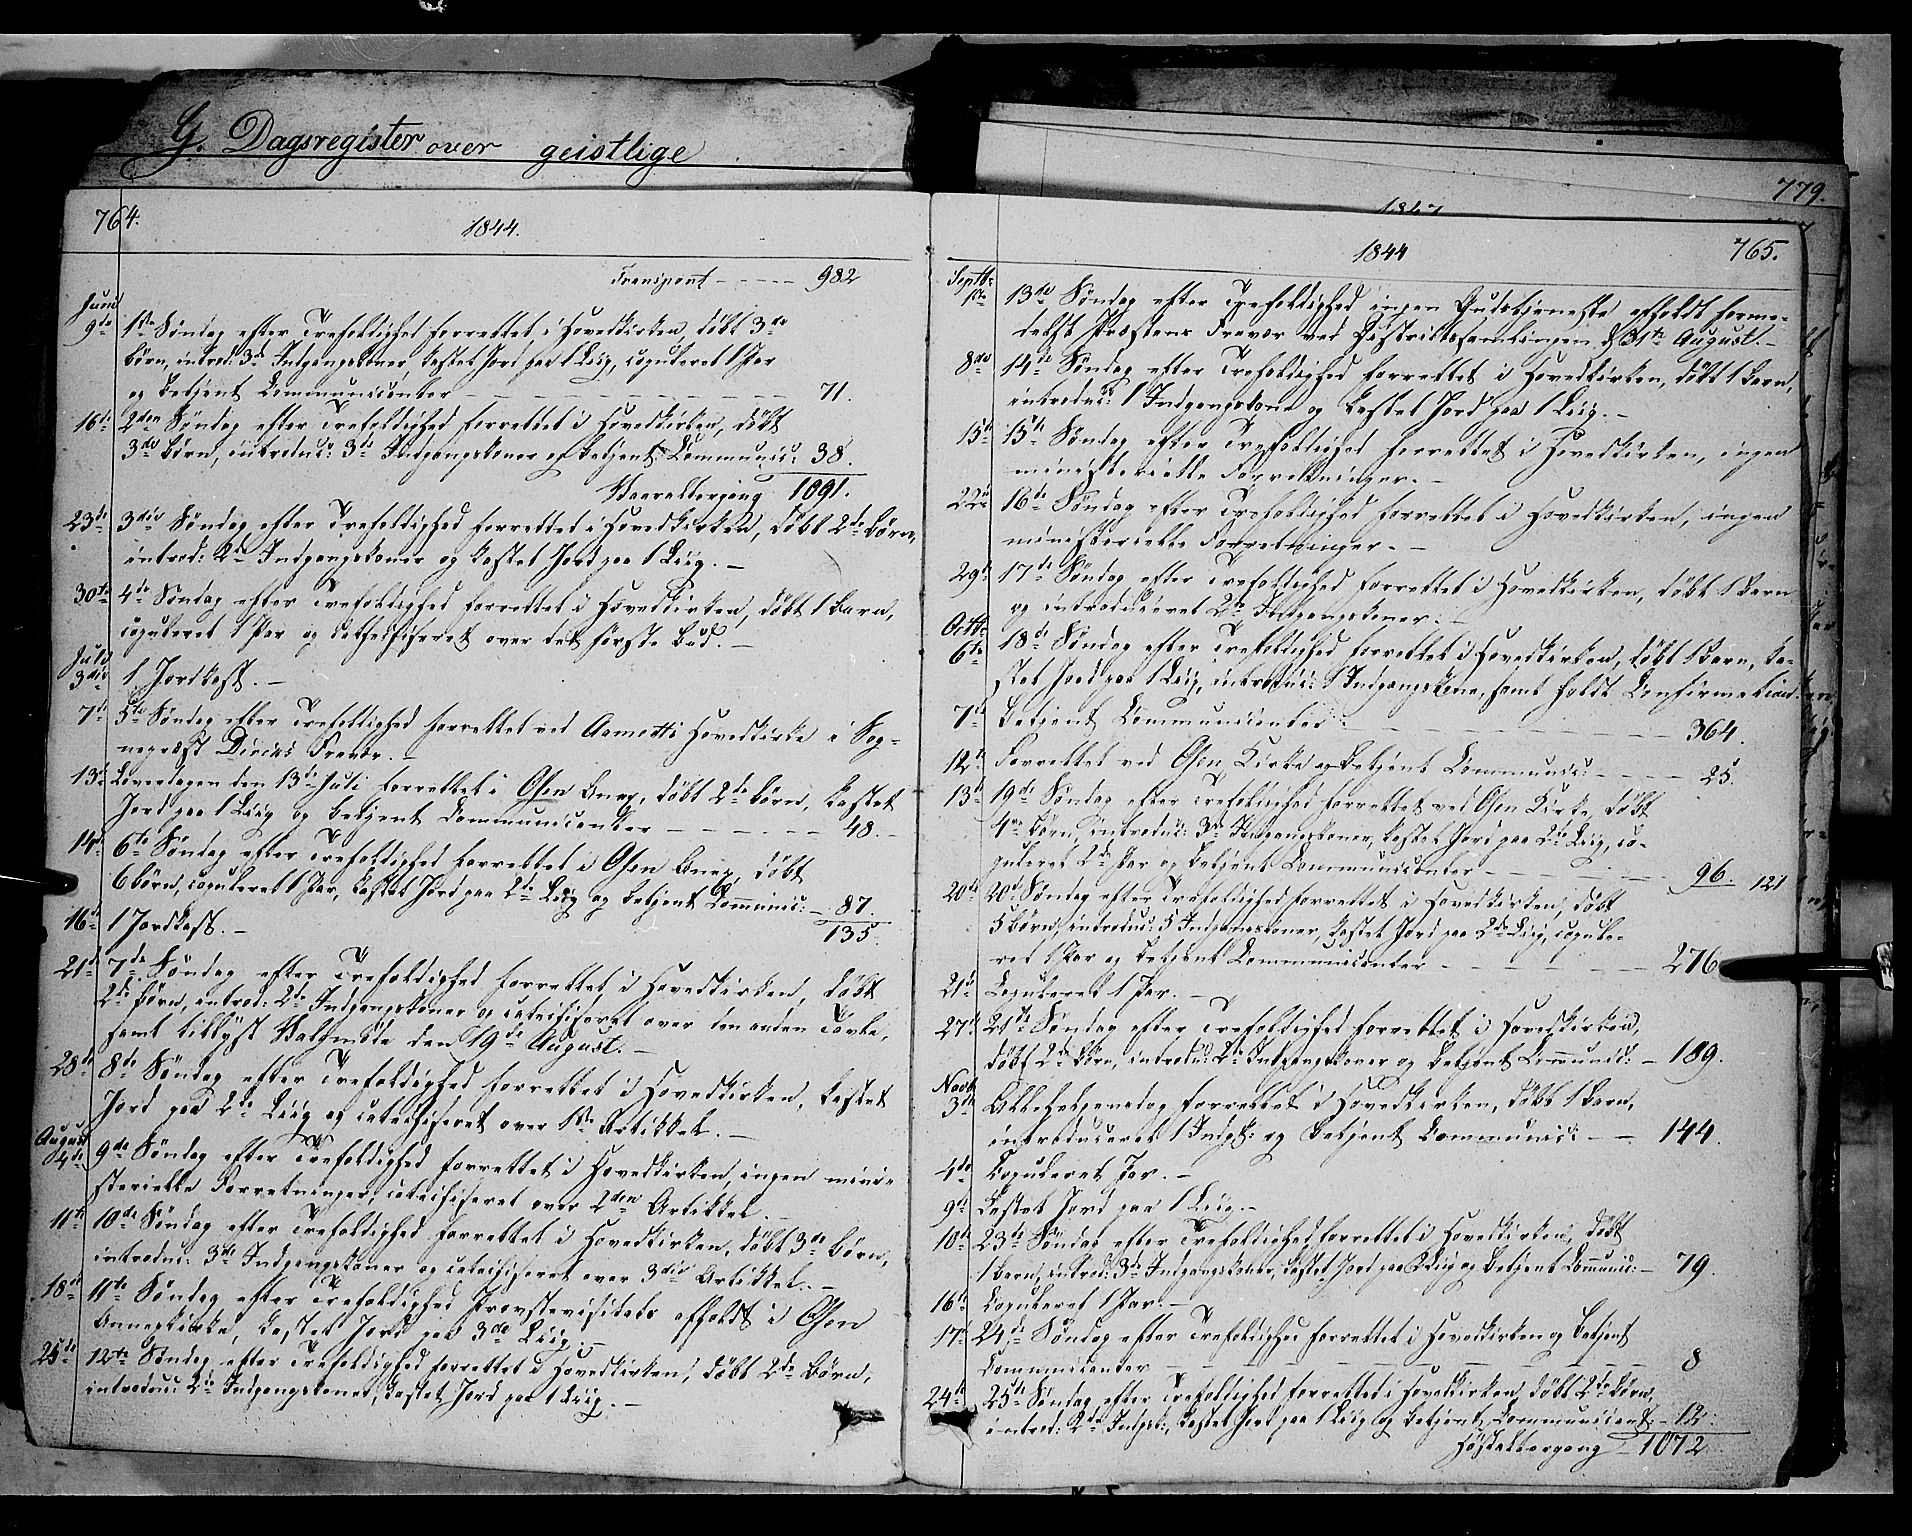 G. Dagsregister over geistlige
764.
1844.
Transport - - - - 982
Juni
9de 1ste Søndag efter Trefoldighed forrettet i Hovedkirken, døbt 3de
Børn, introd: 3de Indgangskoner, kastet Jord paa 1 Liig, copuleret 1 Par
og betjent Communicanter - - - - - 71.
16de 2den Søndag efter Trefoldighed forrettet i Hovedkirken, døbt
3de Børn, introduc: 3de Indgangskoner og betjent Communic: 38.
Vaaraltergang 1091.
23de 3die Søndag efter Trefoldighed forrettet i Hovedkirken, døbt 2de Børn,
introd: 2de Indgangskoner og kastet Jord paa 1 Liig. -
30te 4de Søndag efter Trefoldighed forrettet i Hovedkirken, døbt 1 Barn,
copuleret 1 Par og catechiseret over det første Bud. -
Juli
3die 1 Jordkast. -
7de 5te Søndag efter Trefoldighed forrettet ved Aamotts Hovedkirke i Sog-
nepræst Fravær. -
13de Løverdagen den 13de Juli forrettet i Osen Anex, døbt 2de Børn, kastet
Jord paa 1 Liig og betjent Communicanter - - - - 48. -
14de 6te Søndag efter Trefoldighed forrettet i Osen Anex, døbt
6 Børn, copuleret 1 Par, kastet Jord paa 2de Liig og betjent Communic: - 87.
16de 1 Jordkast. - 135.
21de 7de Søndag efter Trefoldighed forrettet i Hovedkirken, døbt
2de Børn, introd: 2de Indgangskoner og catechiseret over den anden Tavle,
samt tillyst Valgmøde den 19de August. -
28de 8de Søndag efter Trefoldighed forrettet i Hovedkirken, kastet
Jord paa 2de Liig og catechiseret over 1ste Artikkel. -
August
4de 9de Søndag efter Trefoldighed forrettet i Hovedkirken, ingen mini-
sterielle Forretninger, catechiseret over 2den Artikkel. -
11te 10de Søndag efter Trefoldighed forrettet i Hovedkirken, døbt 3de Børn,
introduc: 3de Indgangskoner og catechiseret over 3die Artikkel. -
18de 11te Søndag efter Trefoldighed Provstevisitats affholdt i Osen
Annexkirke, kastet Jord paa 3de Liig. -
25de 12te Søndag efter Trefoldighed forrettet i Hovedkirken, døbt 2de Børn,
introduc: 2de Indgangskoner, kastet Jord paa 1 Liig. -
779.
1847
1844
765.
Septbr
1ste 13de Søndag efter Trefoldighed ingen Gudstjeneste afholdt forme-
delst Præstens Fravær ved Distriktssamlingen d 31te August. -
8de 14de Søndag efter Trefoldighed forrettet i Hovedkirken, døbt 1 Barn,
introduc: 1 Indgangskone og kastet Jord paa 1 Liig. -
15de 15de Søndag efter Trefoldighed forrettet i Hovedkirken, ingen
ministerielle Forretninger. -
22de 16de Søndag efter Trefoldighed forrettet i Hovedkirken, ingen
ministerielle Forretninger. -
29de 17de Søndag efter Trefoldighed forrettet i Hovedkirken, døbt 1 Barn
og introduceret 2de Indgangskoner. -
Octbr
6te 18de Søndag efter Trefoldighed forrettet i Hovedkirken, døbt 1 Barn, ka-
stet Jord paa 1 Liig, introduc: 1 Indgangskone, samt holdt Confirmation.
7de Betjent Communicanter - - - - - 364.
12te Forrettet ved Osen Kirke og betjent Communic: - - - - 25.
13de 19de Søndag efter Trefoldighed forrettet ved Osen Kirke, døbt
4re Børn, introduc: 3de Indgangskoner, kastet Jord paa 2de Liig, co-
puleret 2de Par og betjent Communicanter - - - - - 96. 121
20de 20de Søndag efter Trefoldighed forrettet i Hovedkirken, døbt
5 Børn, introduc: 5 Indgangskoner, kastet Jord paa 2de Liig, copule-
ret 1 Par og betjent Communicanter - - - - - 276
21de Copuleret 1 Par. -
27de 21de Søndag efter Trefoldighed forrettet i Hovedkirken,
døbt 2de Børn, introdu: 2de Indgangskoner og betjent Communic: - 189.
Novbr
3die Allehelgensdag forrettet i Hovedkirken, døbt 1 Barn,
introduceret 1 Indgk: og betjent Communic: - - 144.
4de Copuleret Par. -
9de Kastet Jord paa 1 Liig. -
10de 23de Søndag efter Trefoldighed forrettet i Hovedkirken, døbt
1 Barn, introd: 3de Indgangskoner, kastet Jord paa 2 Liig og betjent Comunic: - 79.
16de Copuleret 1 Par. -
17de 24de Søndag efter Trefoldighed forrettet i Hovedkirken og betjent
Communicanter - - - - - 8
24de 25de Søndag efter Trefoldighed forrettet i Hovedkirken, døbt 2de Børn,
introd: 2de Indgsk:, kastet Jord paa 1 Liig og betjent Communicant: - 12.
Høstaltergang - 1072